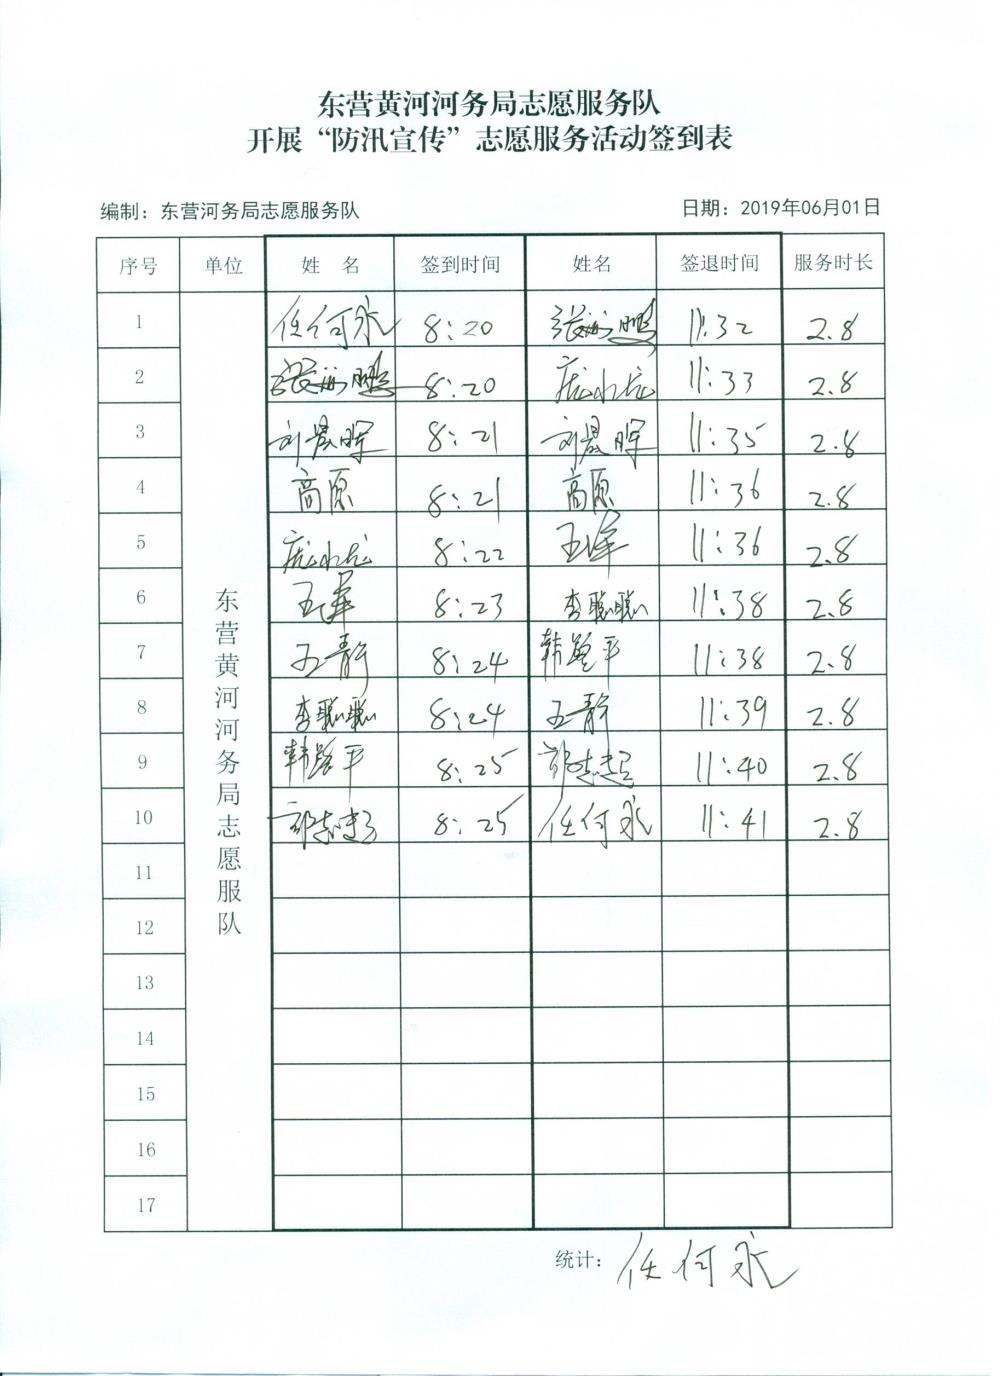 东营黄河河务局志愿服务队
开展“防汛宣传”志愿服务活动签到表
编制：东营河务局志愿服务队 日期：2019年06月01日
序号 单位 姓 名 签到时间 姓名 签退时间 服务时长
东营黄河河务局志愿服队
1 任何永 8:20 张海鹏 11:32 2.8
2 张海鹏 8:20 庞水龙 11:33 2.8
3 刘晨晖 8:21 刘晨晖 11:35 2.8
4 高原 8:21 高原 11:36 2.8
5 庞水龙 8:22 王萍 11:36 2.8
6 王萍 8:23 李聪聪 11:38 2.8
7 王静 8:24 韩 平 11:38 2.8
8 李聪聪 8:24 王静 11:39 2.8
9 韩 平 8:25 郭志超 11:40 2.8
10 郭志超 8:25 任何永 11:41 2.8
11
12
13
14
15
16
17
统计：任何永